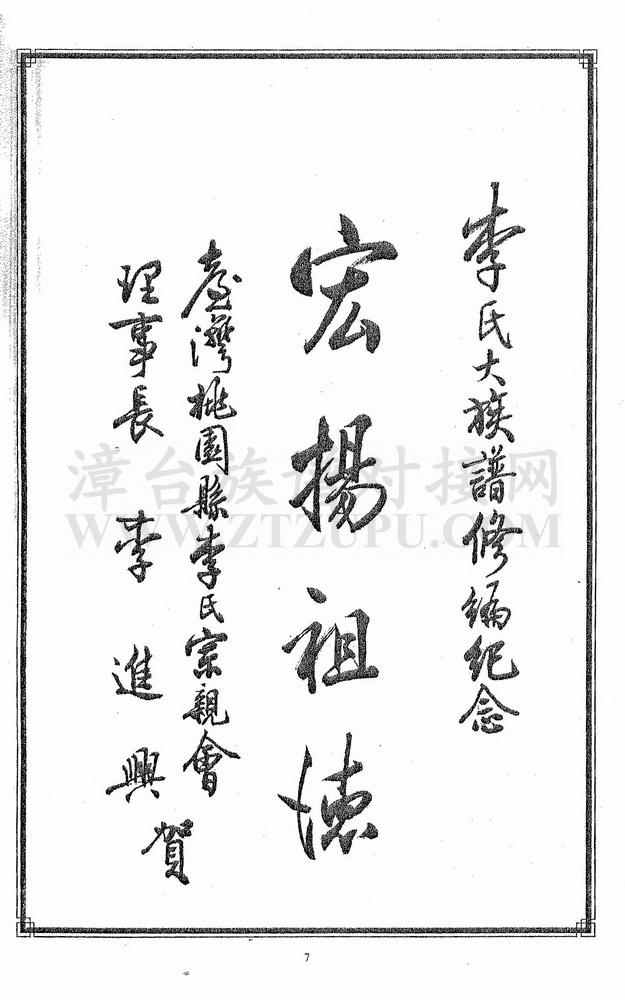 李氏大族譜修編紀念
宏揚祖德
臺灣桃園縣李氏宗親會
理事長 李進興 賀
漳台族谱对接网
WWW.ZTZUPU.COM
7